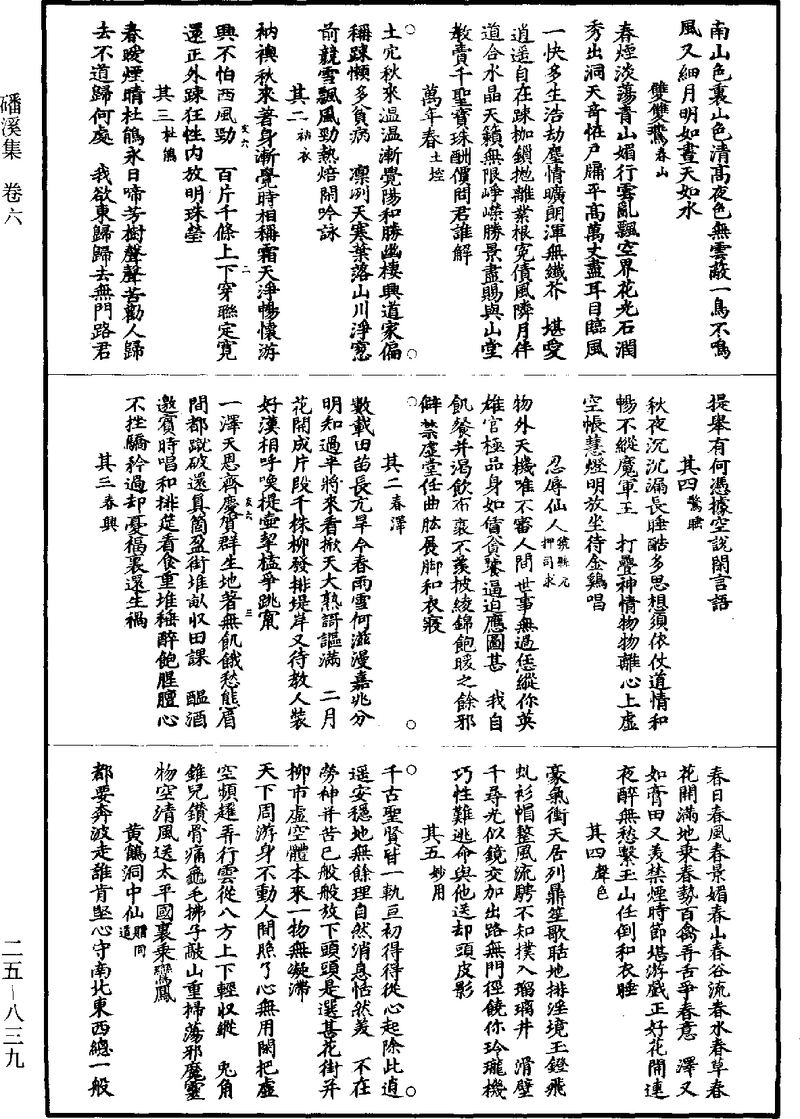 磻溪集　卷六
二五—八三九
南山色裏山色清高夜色無雲蔽一鳥不鳴
風又細月明如晝天如水
雙雙鷰春山
春煙淡蕩青山媚行雲亂飄空界花光石潤
秀出洞天奇恠戶牖平高萬丈盡耳目臨風
一快多生浩劫塵情曠朗渾無纖芥　堪愛
逍遥自在踈枷鎖抛離業根冤債風隣月伴
道合水晶天籟無限崢嶸勝景盡賜與山堂
教賣千聖寳珠酬價問君誰解
萬年春土垤
土宂秋來温温漸覺陽和勝幽棲興道家偏
稱踈懶多貧病　凛冽天寒葉落山川淨窻
前競雪飄風勁熱焙閑吟詠
其二衲衣
衲襖秋來著身漸覺時相稱霜天淨暢懷游
興不怕西風勁　百片千條上下穿聯定寛
還正外踈狂性内放明珠瑩
其三杜鵑
春暖煙晴杜鵑永日啼芳樹聲聲苦勸人歸
去不道歸何處　我欲東歸歸去無門路君
提舉有何憑據空說閑言語
其四驚睡
秋夜沉沉漏長睡酷多思想須依仗道情和
暢不縱魔軍王　打疊神情物物離心上虚
空帳慧燈明放坐待金鷄唱
忍辱仙人
物外天機唯不審人間世事無過恁縱你英
雄官極品身如賃貪饕逼迫應圖甚　我自
飢飡并渴飲布裘不羡披綾錦飽暖之餘邪
僻禁虚堂任曲肱展脚和衣寢
其二春澤
數載田苗長亢旱今春雨雪何滋漫嘉兆分
明知過半將來看掀天大熟謌謳滿　二月
花開成片段千株柳發排堤岸又待教人裝
好漢相呼喚提壺挈榼爭跳竄
一澤天恩齊慶賀群生地著無飢餓愁態眉
間都蹴破還真箇盈街堆畝収田課　醖酒
邀賓時唱和排筵看食重堆種醉飽腥膻心
不挫驕矜過却憂福裏還生禍
其三春興
春日春風春景媚春山春谷流春水春草春
花開滿地乗春勢百禽弄舌爭春意　澤又
如膏田又美禁煙時節堪游戯正好花間連
夜醉無愁繫玉山任倒和衣睡
其四聲色
豪氣衝天居列鼎笙歌聒地排淫境玉鐙飛
虬衫帽整風流騁不知撲入瑠璃井　滑壁
千尋光似鏡交加出路無門徑饒你玲瓏機
巧性難逃命與他送却頭皮影
其五妙用
千古聖賢皆一軌亘初得得從心起除此逍
遥安穏地無餘理自然消息恬然羡　不在
勞神并苦己般般放下頭頭是選甚花街并
柳市虚空體本來一物無凝滯
天下周游身不動人間照了心無用閑把虚
空頻趯弄行雲從八方上下輕収縱　兎角
錐兒鑚骨痛龜毛拂子敲山重掃蕩邪魔靈
物空清風送太平國裏乗鸞鳳
黄鶴洞中仙贈同道
都要奔波走誰肯堅心守南北東西總一般